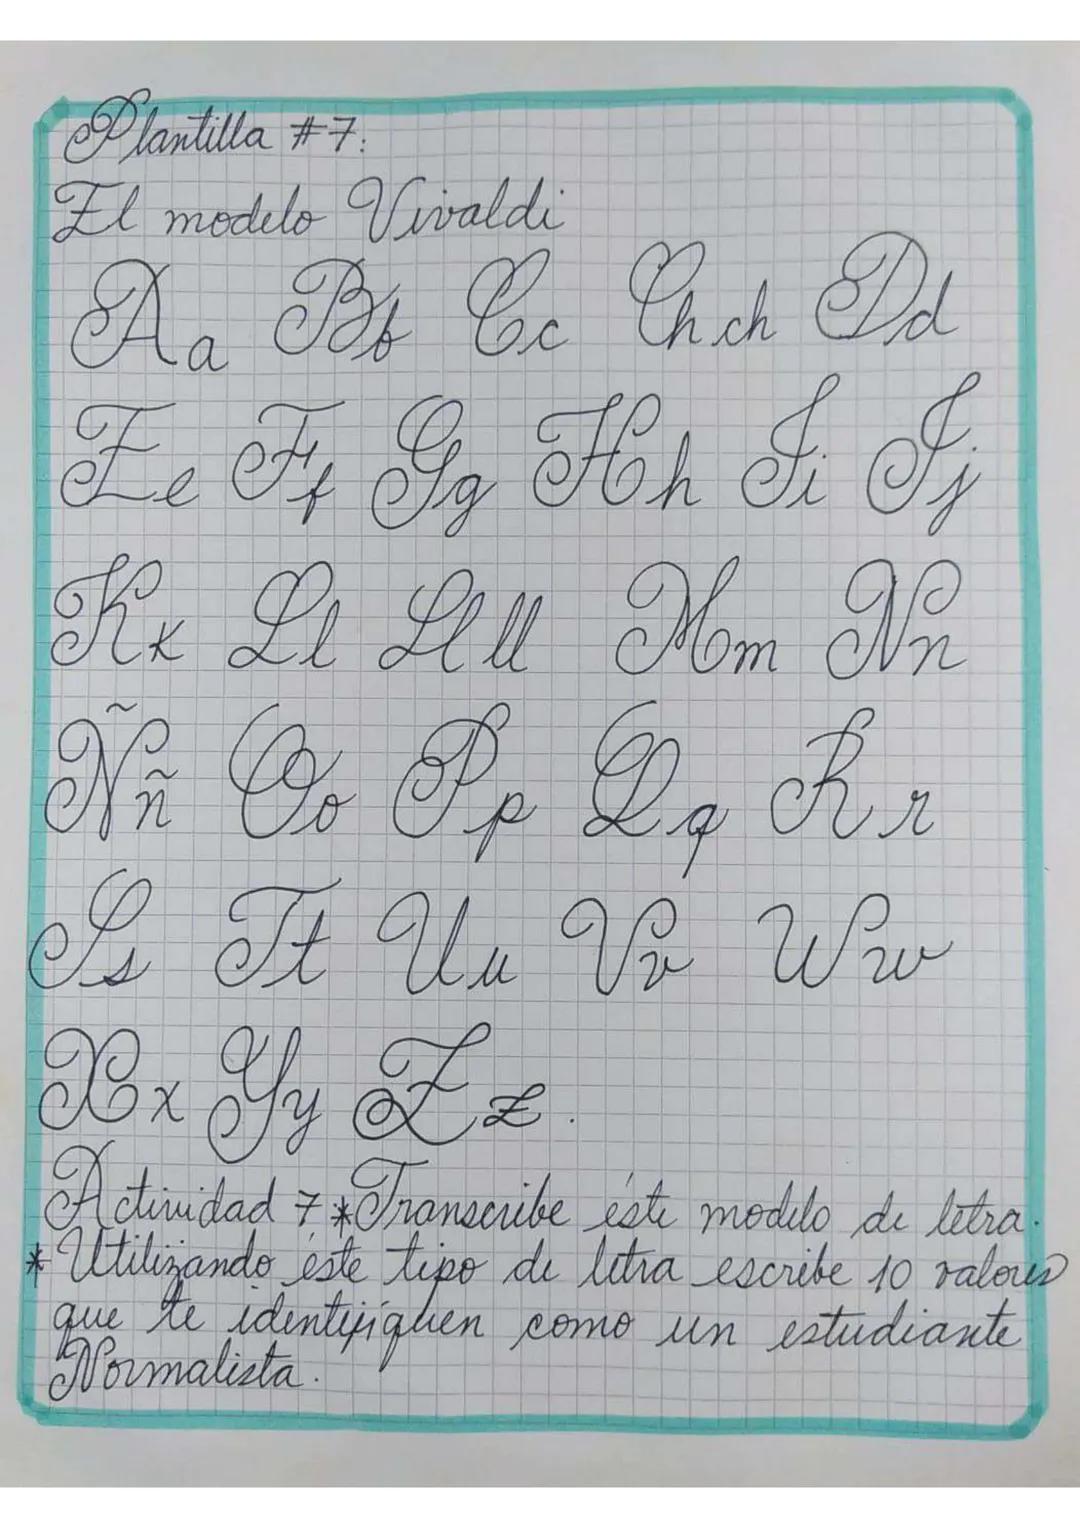 Plantilla #7:
El modelo Vivaldi
Aa Bb Cc Chch Dd
Ee Ff Gg Hh Ii Jj
Kk Ll Llll Mm Nn
Ññ Oo Pp Qq Rr
Ss Tt Uu Vv Ww
Xx Yy Zz.
Actividad 7 *Transcribe éste modelo de letra.
*Utilizando éste tipo de letra escribe 10 valores
que te identifiquen como un estudiante
Normalista.